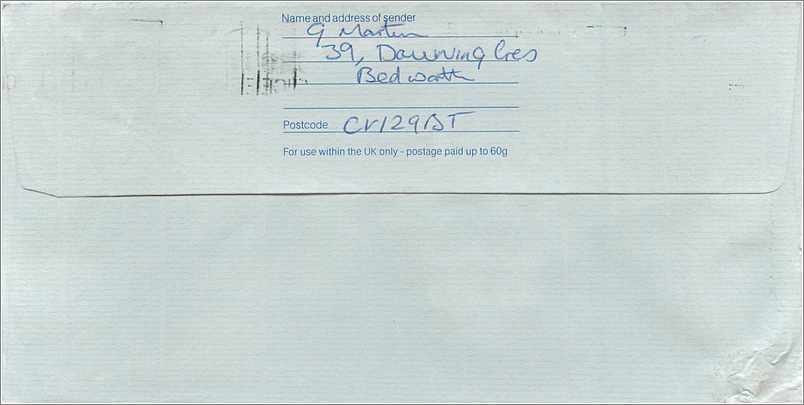 Name and address of sender
G Martin
39, Downing Cres
Bedworth
Postcode CV129BT
For use within the UK only - postage paid up to 60g